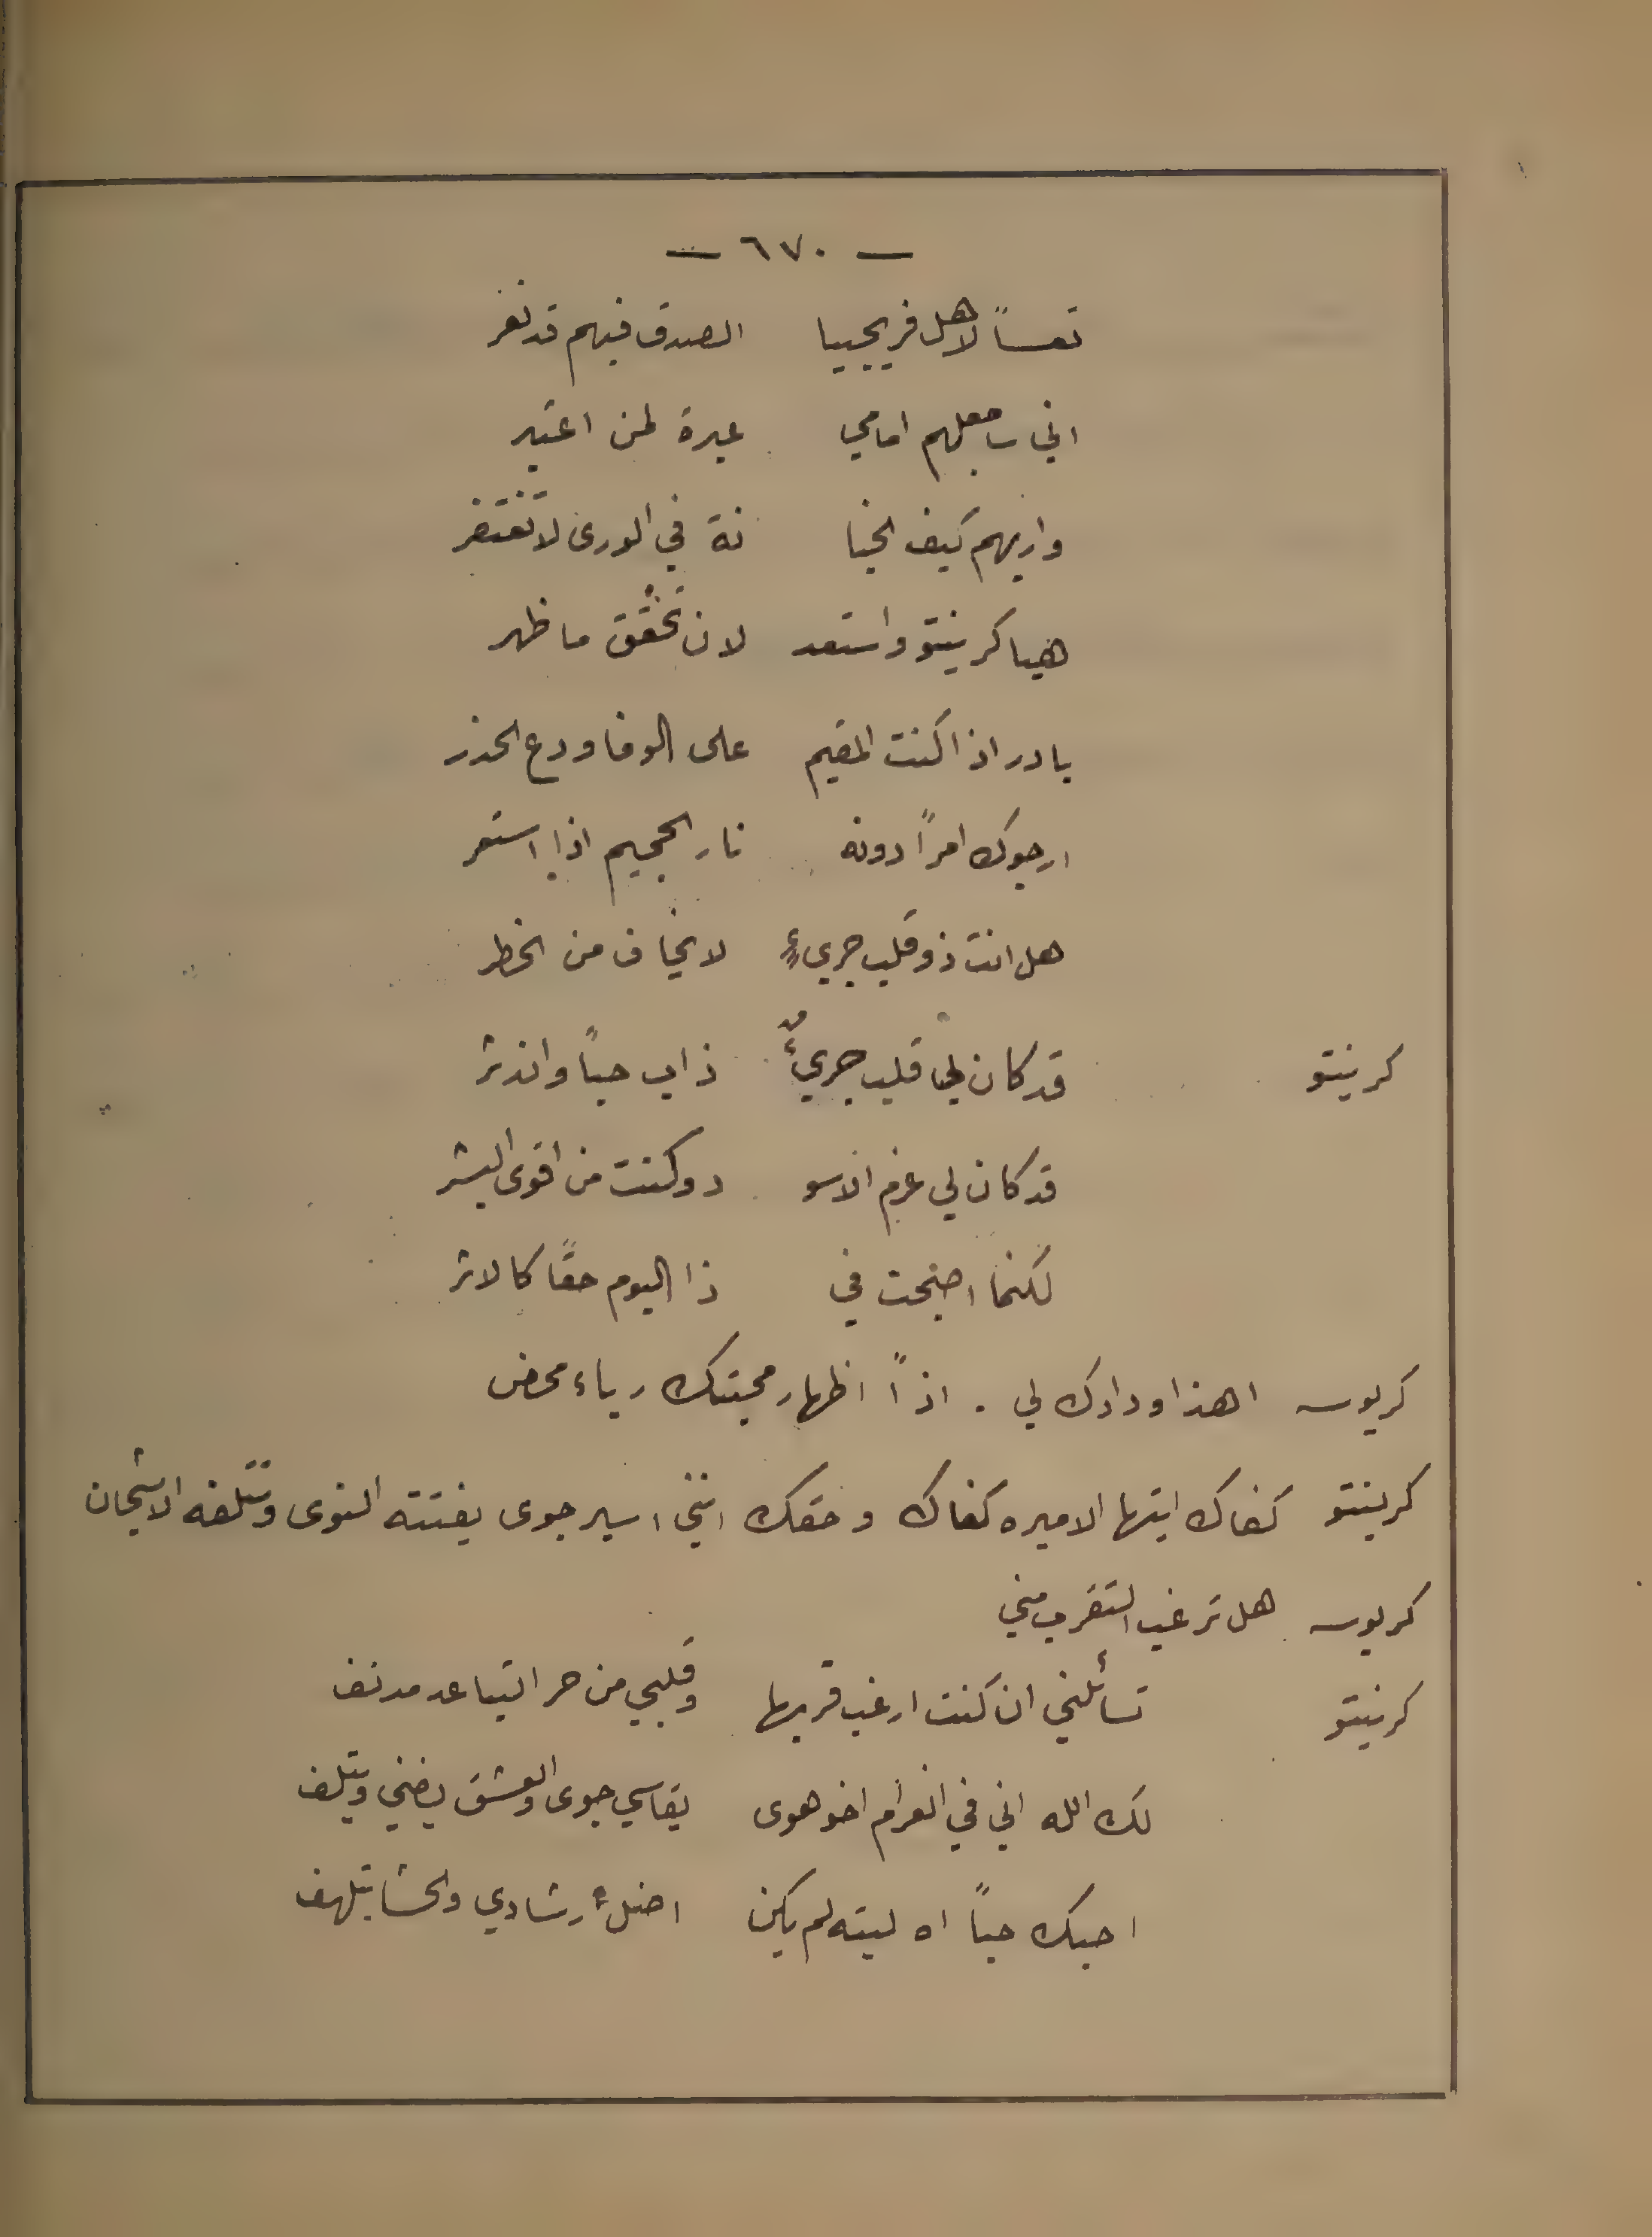 — ٦٧٠ —
تعساً لاهل فريجييا الصدق فيهم قد نفر
اني ساجعلهم امامي عبرة لمن اعتبر
واريهم كيف الخيا نة في الورى لا تغتفر
هيا كرينتو واستعد لان تحقق ما ظهر
بادر اذا كنت المقيم على الوفا ودع الحذر
ارجوك امراً دونه نار الجحيم اذا استعر
هل انت ذو قلب جريءٍ لا يخاف من الخطر
كرينتو قد كان لي قلب جريءٌ ذاب حباً واندثر
قد كان لي عزم الاسو د وكنت من اقوى البشر
لكنما اصبحت في ذا اليوم حقاً كالاثر
كريوسه اهذا ودادك لي . اذاً اظهار محبتك رياء محض
كرينتو كفاك ايتها الاميره كفاك وحقك انني اسير جوى يفتته النوى وتتلفه الاشجان
كريوسه هل ترغب التقرب مني
كرينتو تسائلني ان كنت ارغب قربها وقلبي من حر التباعد مدنف
لك الله اني في الغرام اخو هوى يقاسي جوى والعشق يضني ويتلف
احبك حباً اه ليته لم يكن اضل رشادي والحشا يتلهف